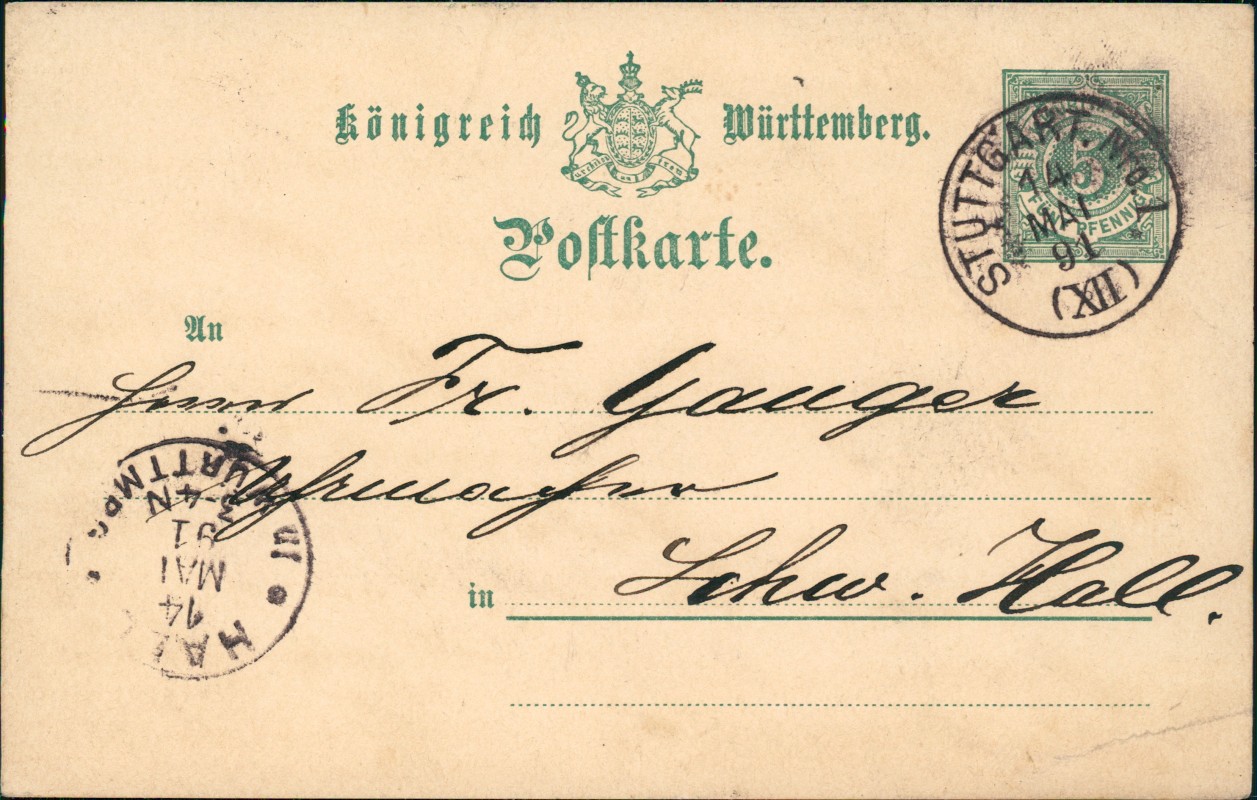 Königreich Württemberg.
Furchtlos und trew
Postkarte.
5
FÜNF PFENNIG
STUTTGART. No. 1
14
MAI
91
(IIX)
An
Herrn Fr. Gauger
Uhrmacher
in Schw. Hall.
HALL in WÜRTTMBG
14
MAI
91
3-4N